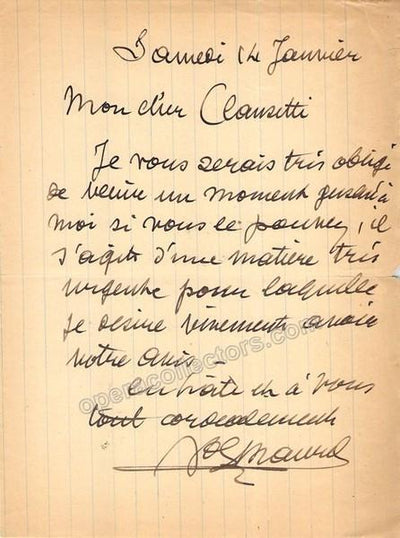 Samedi 14 Janvier
Mon cher Clausetti
Je vous serais très obligé
de venir un moment jusqu'à
moi si vous le pouvez, il
s'agit d'une matière très
urgente pour laquelle
je désire vivement avoir
votre avis –
en hâte et à vous
tout cordialement
Maurel
operacollectors.com